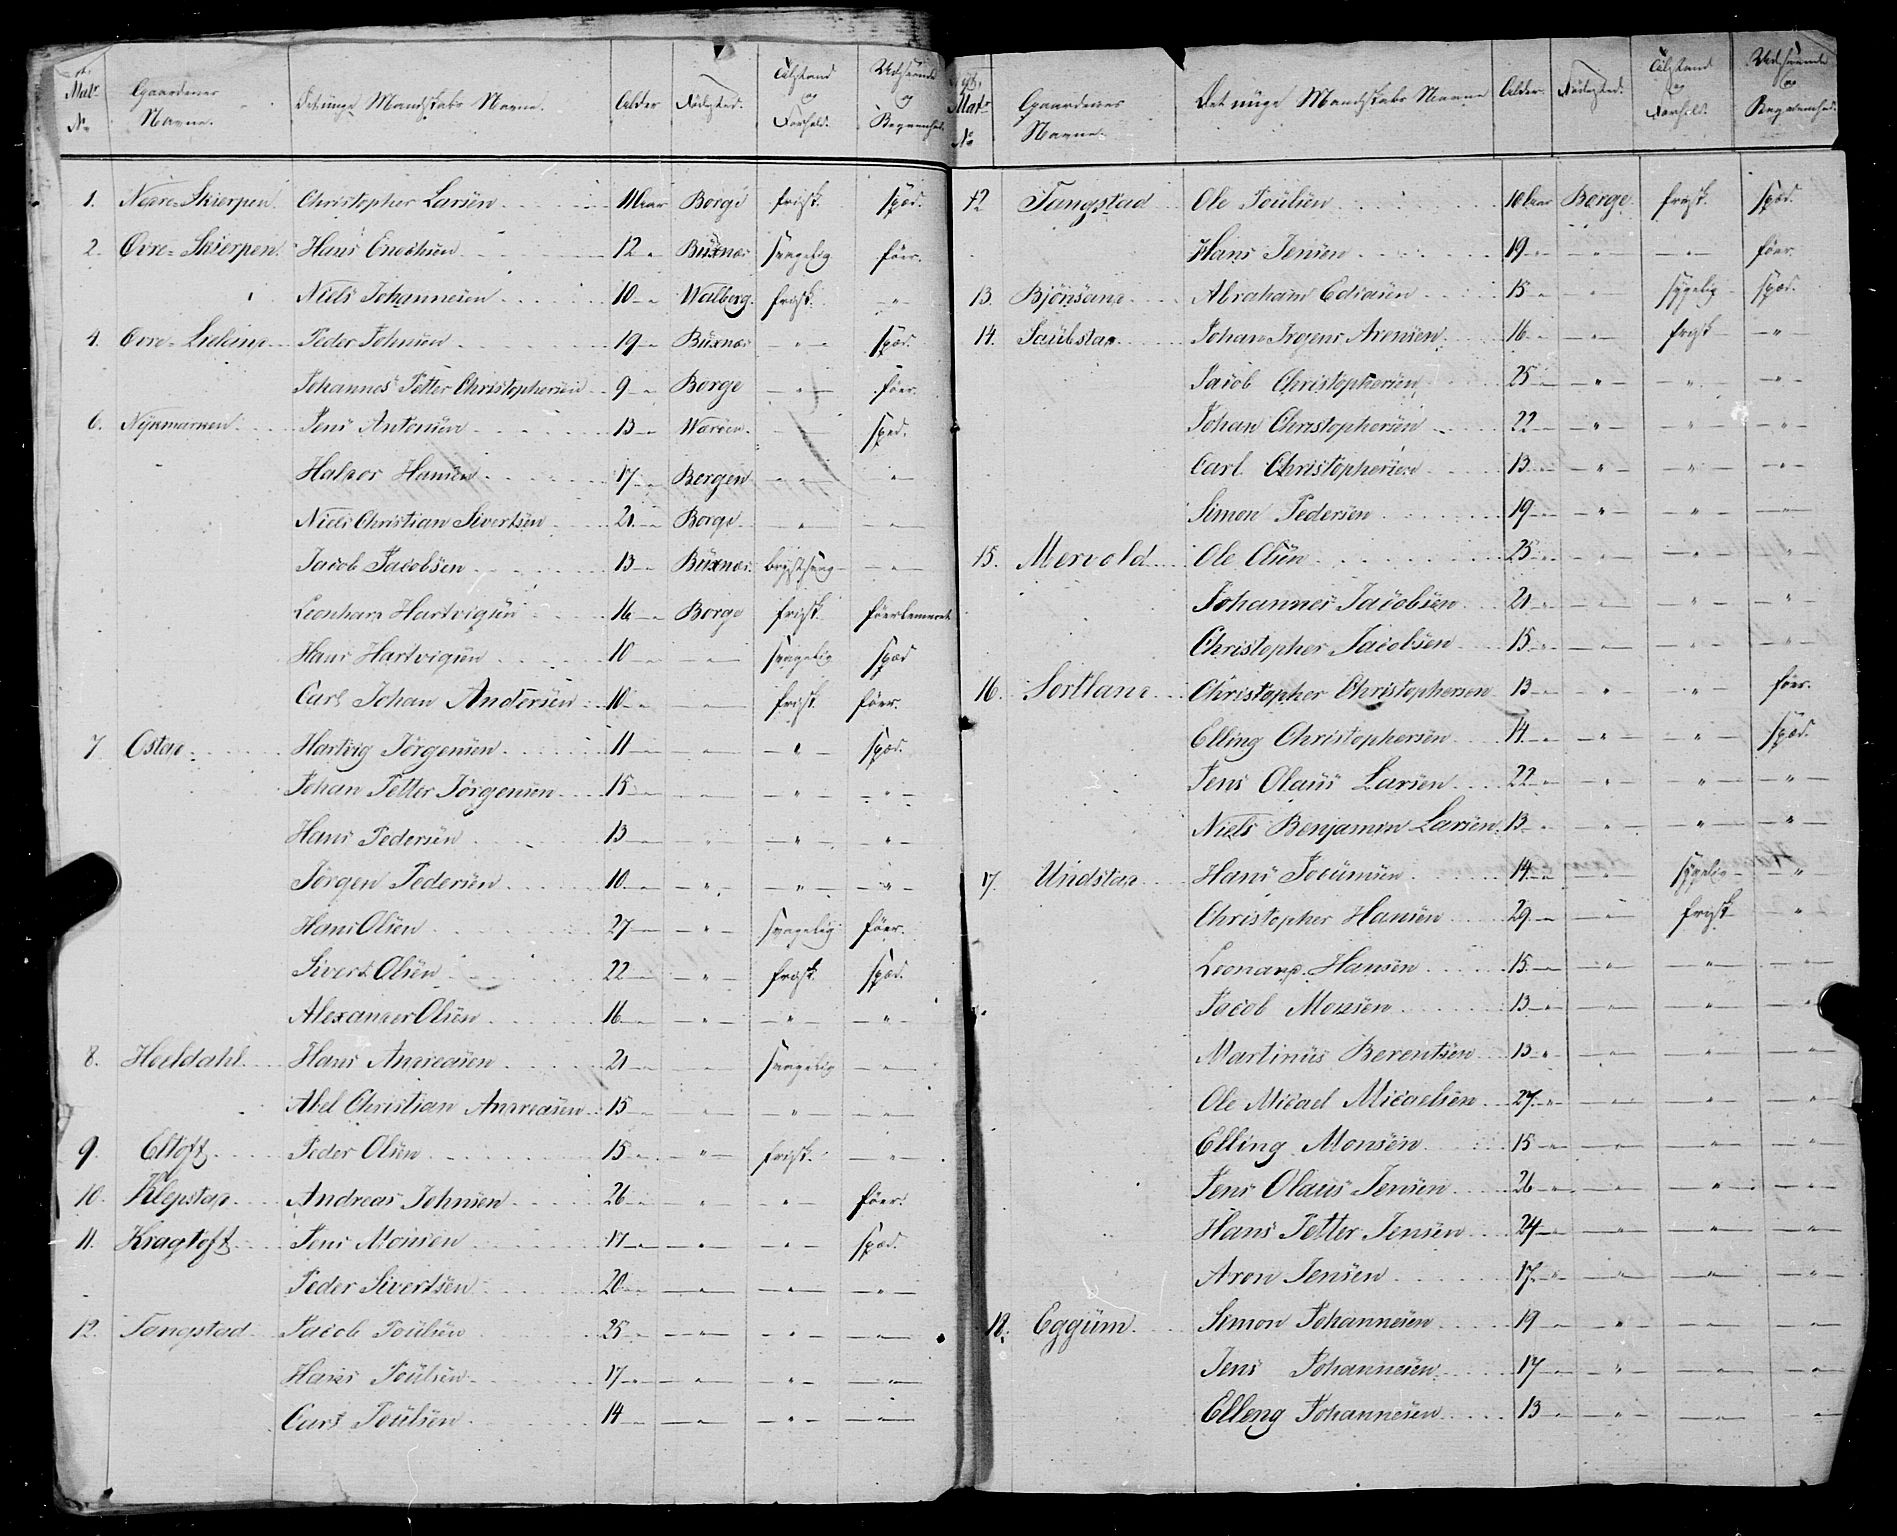 Matr No | Gaardenes Navne. | Det unge Mandskabs Navne. | Alder | Födested. | Tilstand og Forhold. | Udseende og Beqvemhed.
1. Nedre-Skierpen Christopher Larsen 11 Aar Borge frisk. spæd.
2. Ovre-Skierpen. Hans Enochsen 12 " Buxnæs svagelig föer.
Niels Johannesen 10 " Walberg. frisk. "
4. Ovre-Lieland Peder Johnsen 19 " Buxnæs " spæd.
Johannes Petter Christophersen 9 " Borge " föer.
6. Nykmarken Jens Antonsen 13 " Wæröen " spæd.
Halvor Hansen 17 " Bergen " "
Niels Christian Sivertsen 21 " Borge " "
Jacob Jacobsen 13 " Buxnæs brystsvag "
Leonhard Hartvigsen 16 " Borge frisk föerlemmet
Hans Hartvigsen 10 " " svagelig spæd
Carl Johan Andersen 10 " " frisk föer.
7. Ostad Hartvig Jörgensen 11 " " " spæd.
Johan Petter Jörgensen 15 " " " "
Hans Pedersen 13 " " " "
Jörgen Pedersen 10 " " " "
Hans Olsen 27 " " svagelig föer.
Sivert Olsen 22 " " frisk spæd.
Alexander Olsen 16 " " " "
8. Holdahl Hans Andreasen 21 " " svagelig "
Abel Christian Andreasen 15 " " " "
9. Eltoft Peder Olsen 15 " " frisk. "
10. Klepstad Andreas Johnsen 26 " " " föer.
11. Kragtoft Jens Monsen 17 " " " spæd.
Peder Sivertsen 20 " " " "
12. Tangstad Jacob Poulsen 25 " " " "
Hans Poulsen 17 " " " "
Carl Poulsen 14 " " " "
Matr No | Gaardenes Navne. | Det unge Mandskabs Navne | Alder. | Födested. | Tilstand og Forhold. | Udseende og Beqvemhed.
12 Tangstad Ole Poulsen 10 Aar Borge frisk. spæd.
Hans Jensen 19 " " " föer.
13. Bjönsand Abraham Ediasen 15 " " sygelig spæd.
14. Saubstad Johan Irgens Arensen 16 " " frisk "
Jacob Christophersen 25 " " " "
Johan Christophersen 22 " " " "
Carl Christophersen 13 " " " "
Simon Pedersen 19 " " " "
15. Mervold Ole Olsen 25 " " " "
Johannes Jacobsen 21 " " " "
Christopher Jacobsen 15 " " " "
16. Sortland Christopher Christophersen 13 " " " föer.
Elling Christophersen 14 " " " spæd.
Jens Olaus Larsen 22 " " " "
Niels Benjamin Larsen 13 " " " "
17. Undstad Hans Jocumsen 14 " " sygelig "
Christopher Hansen 29 " " frisk "
Leonard Hansen 15 " " " "
Jacob Monsen 13 " " " "
Martinus Berentsen 13 " " " "
Ole Micael Micaelsen 27 " " " "
Elling Monsen 15 " " " "
Jens Olaus Jensen 26 " " " "
Hans Petter Jensen 24 " " " "
Aron Jensen 17 " " " "
18. Eggum Simon Johannesen 19 " " " "
Jens Johannesen 17 " " " "
Elleng Johannesen 13 " " " "